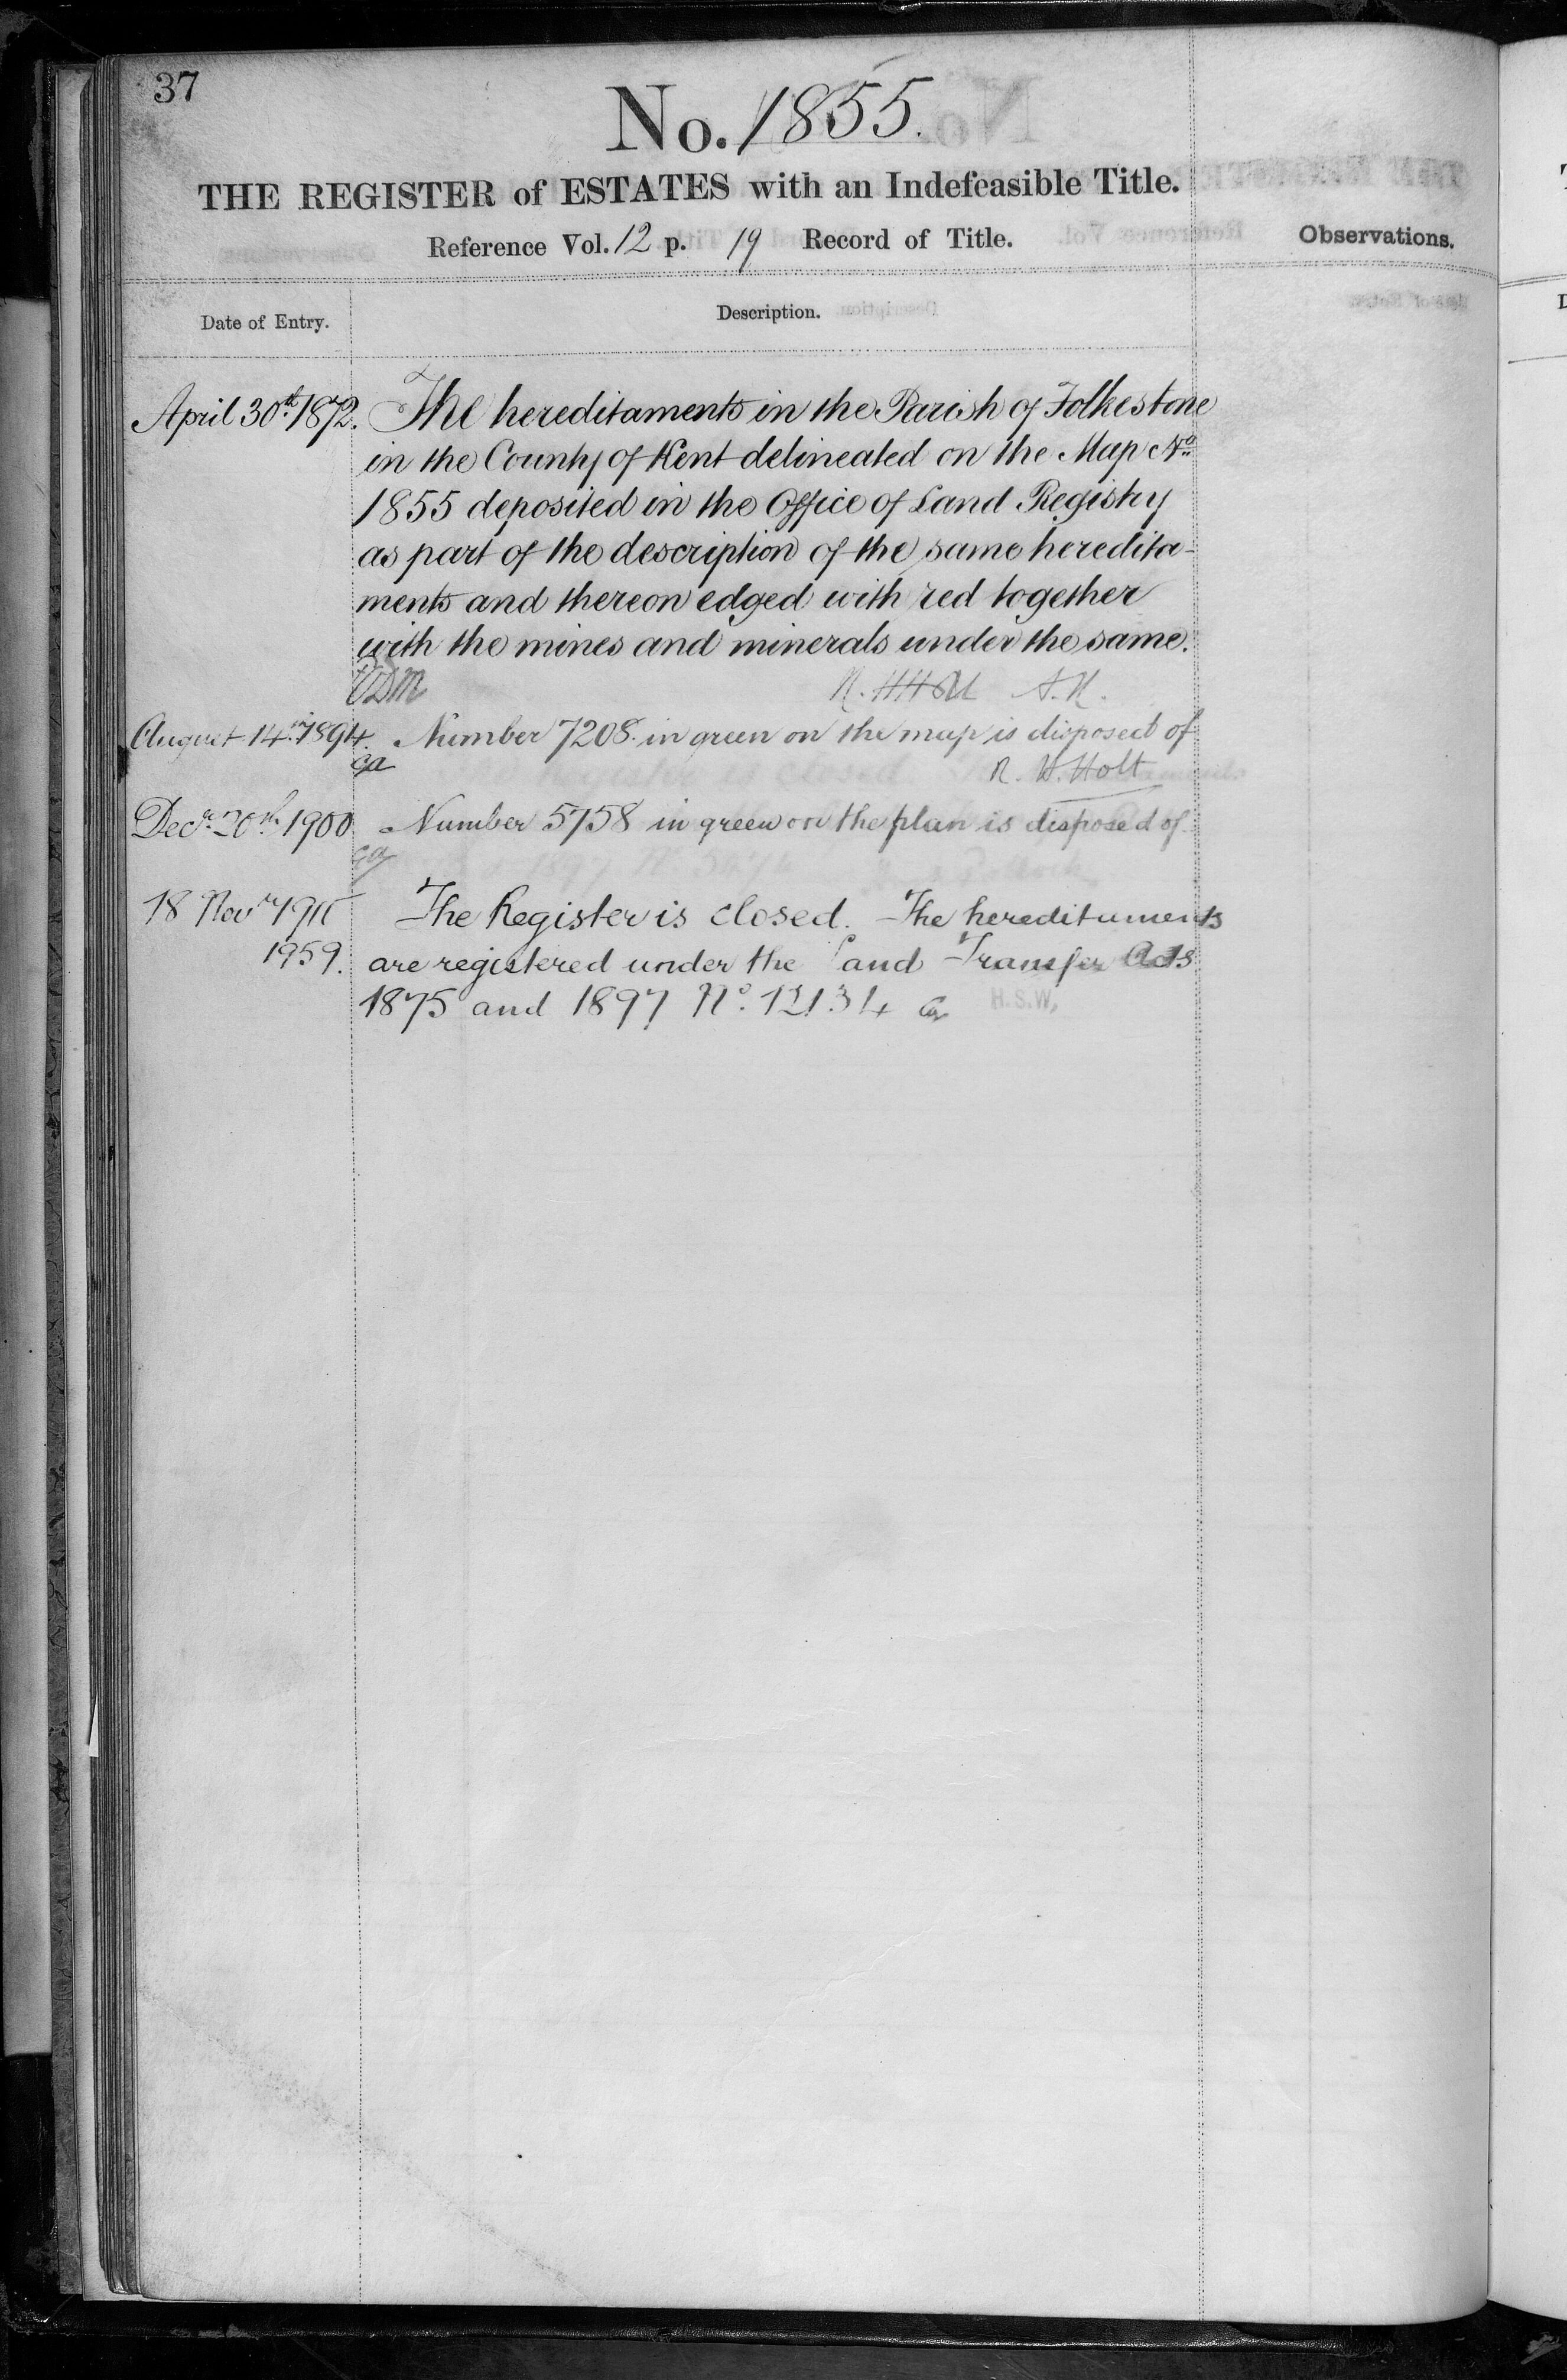 37
No. 1855.
THE REGISTER of ESTATES with an Indefeasible Title.
Reference Vol. 12 p. 19 Record of Title.
Observations.
Date of Entry.
Description.
April 30th 1872. The hereditaments in the Parish of Folkestone
in the County of Kent delineated on the Map No
1855 deposited in the Office of Land Registry
as part of the description of the same heredita-
ments and thereon edged with red together
with the mines and minerals under the same.
R. H Holt A. R.
August 14th 1894. Number 7208 in green on the map is disposed of
R. H. Holt
Decr 20th 1900 Number 5758 in green on the plan is disposed of
18 Novr The Register is closed. The hereditaments
1959. are registered under the Land Transfer Acts
1875 and 1897 No. 12134
H.S.W,